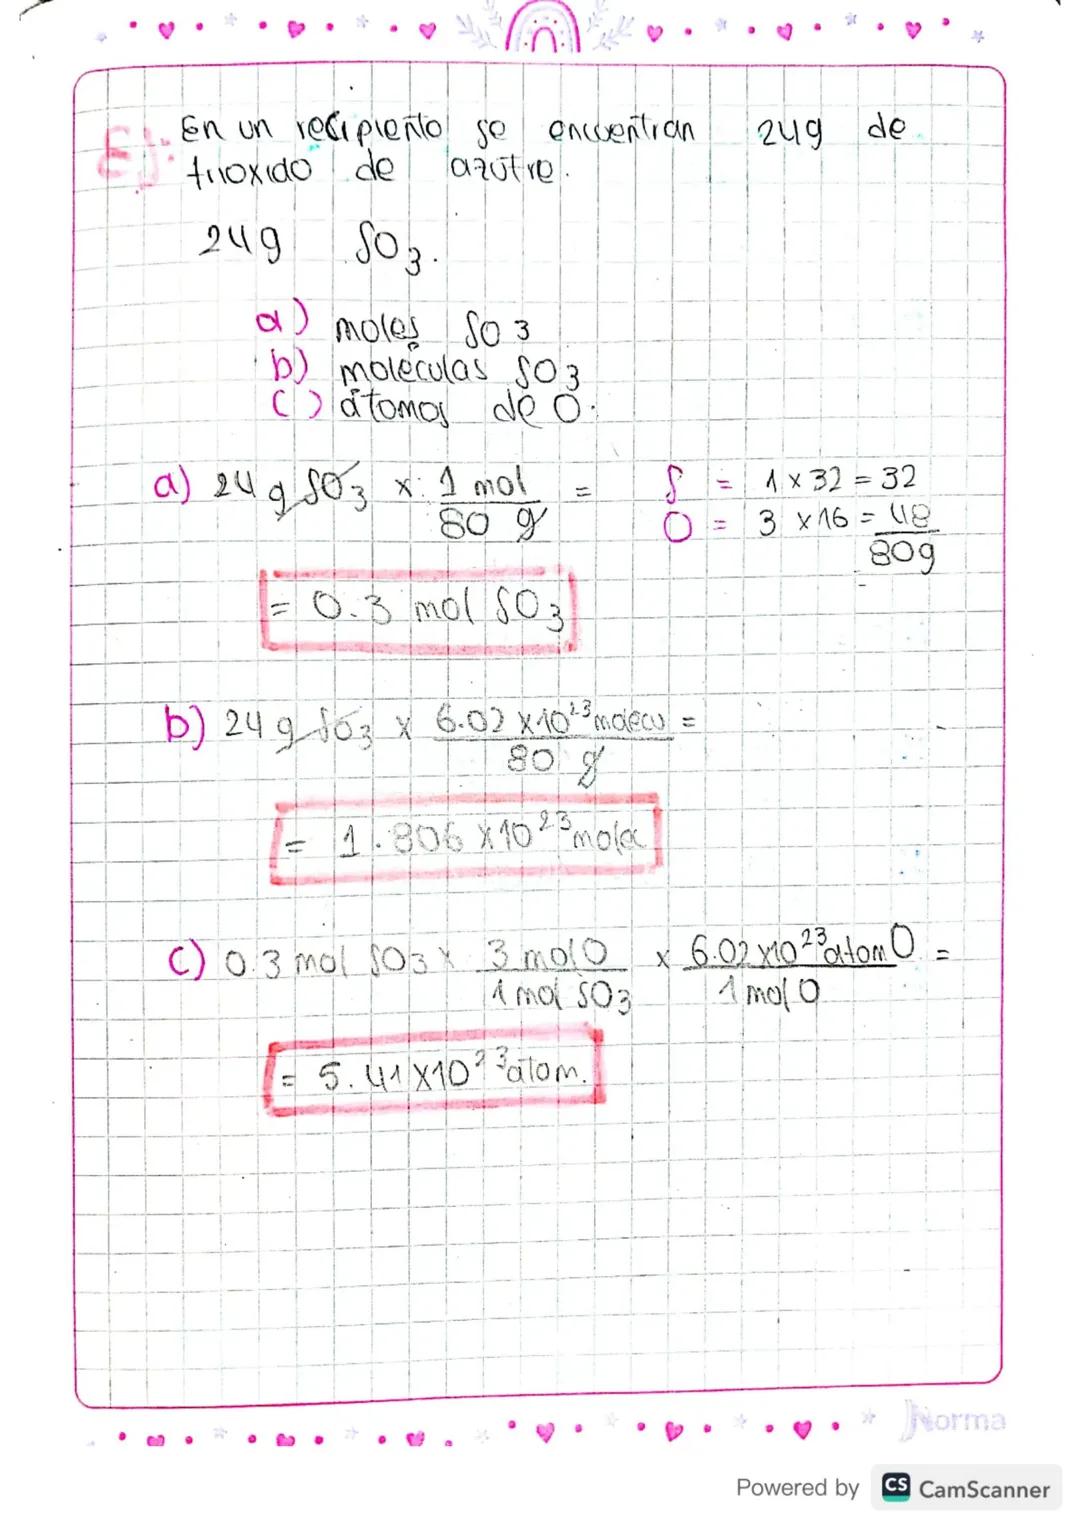 Ej:
En un recipiento se encuentran 24g de
trioxido de azufre.
24g SO3.
a) moles SO3
b) moléculas SO3
c) átomos de O.
a) 24 g SO3 x 1 mol / 80 g =
S = 1 x 32 = 32
O = 3 x 16 = 48
80g
= 0.3 mol SO3
b) 24 g SO3 x 6.02 x 10^23 molecu / 80 g =
= 1.806 x 10^23 molec
c) 0.3 mol SO3 x 3 mol O / 1 mol SO3 x 6.02 x 10^23 atom O / 1 mol O =
= 5.41 x 10^23 átom.
Norma
Powered by CS CamScanner